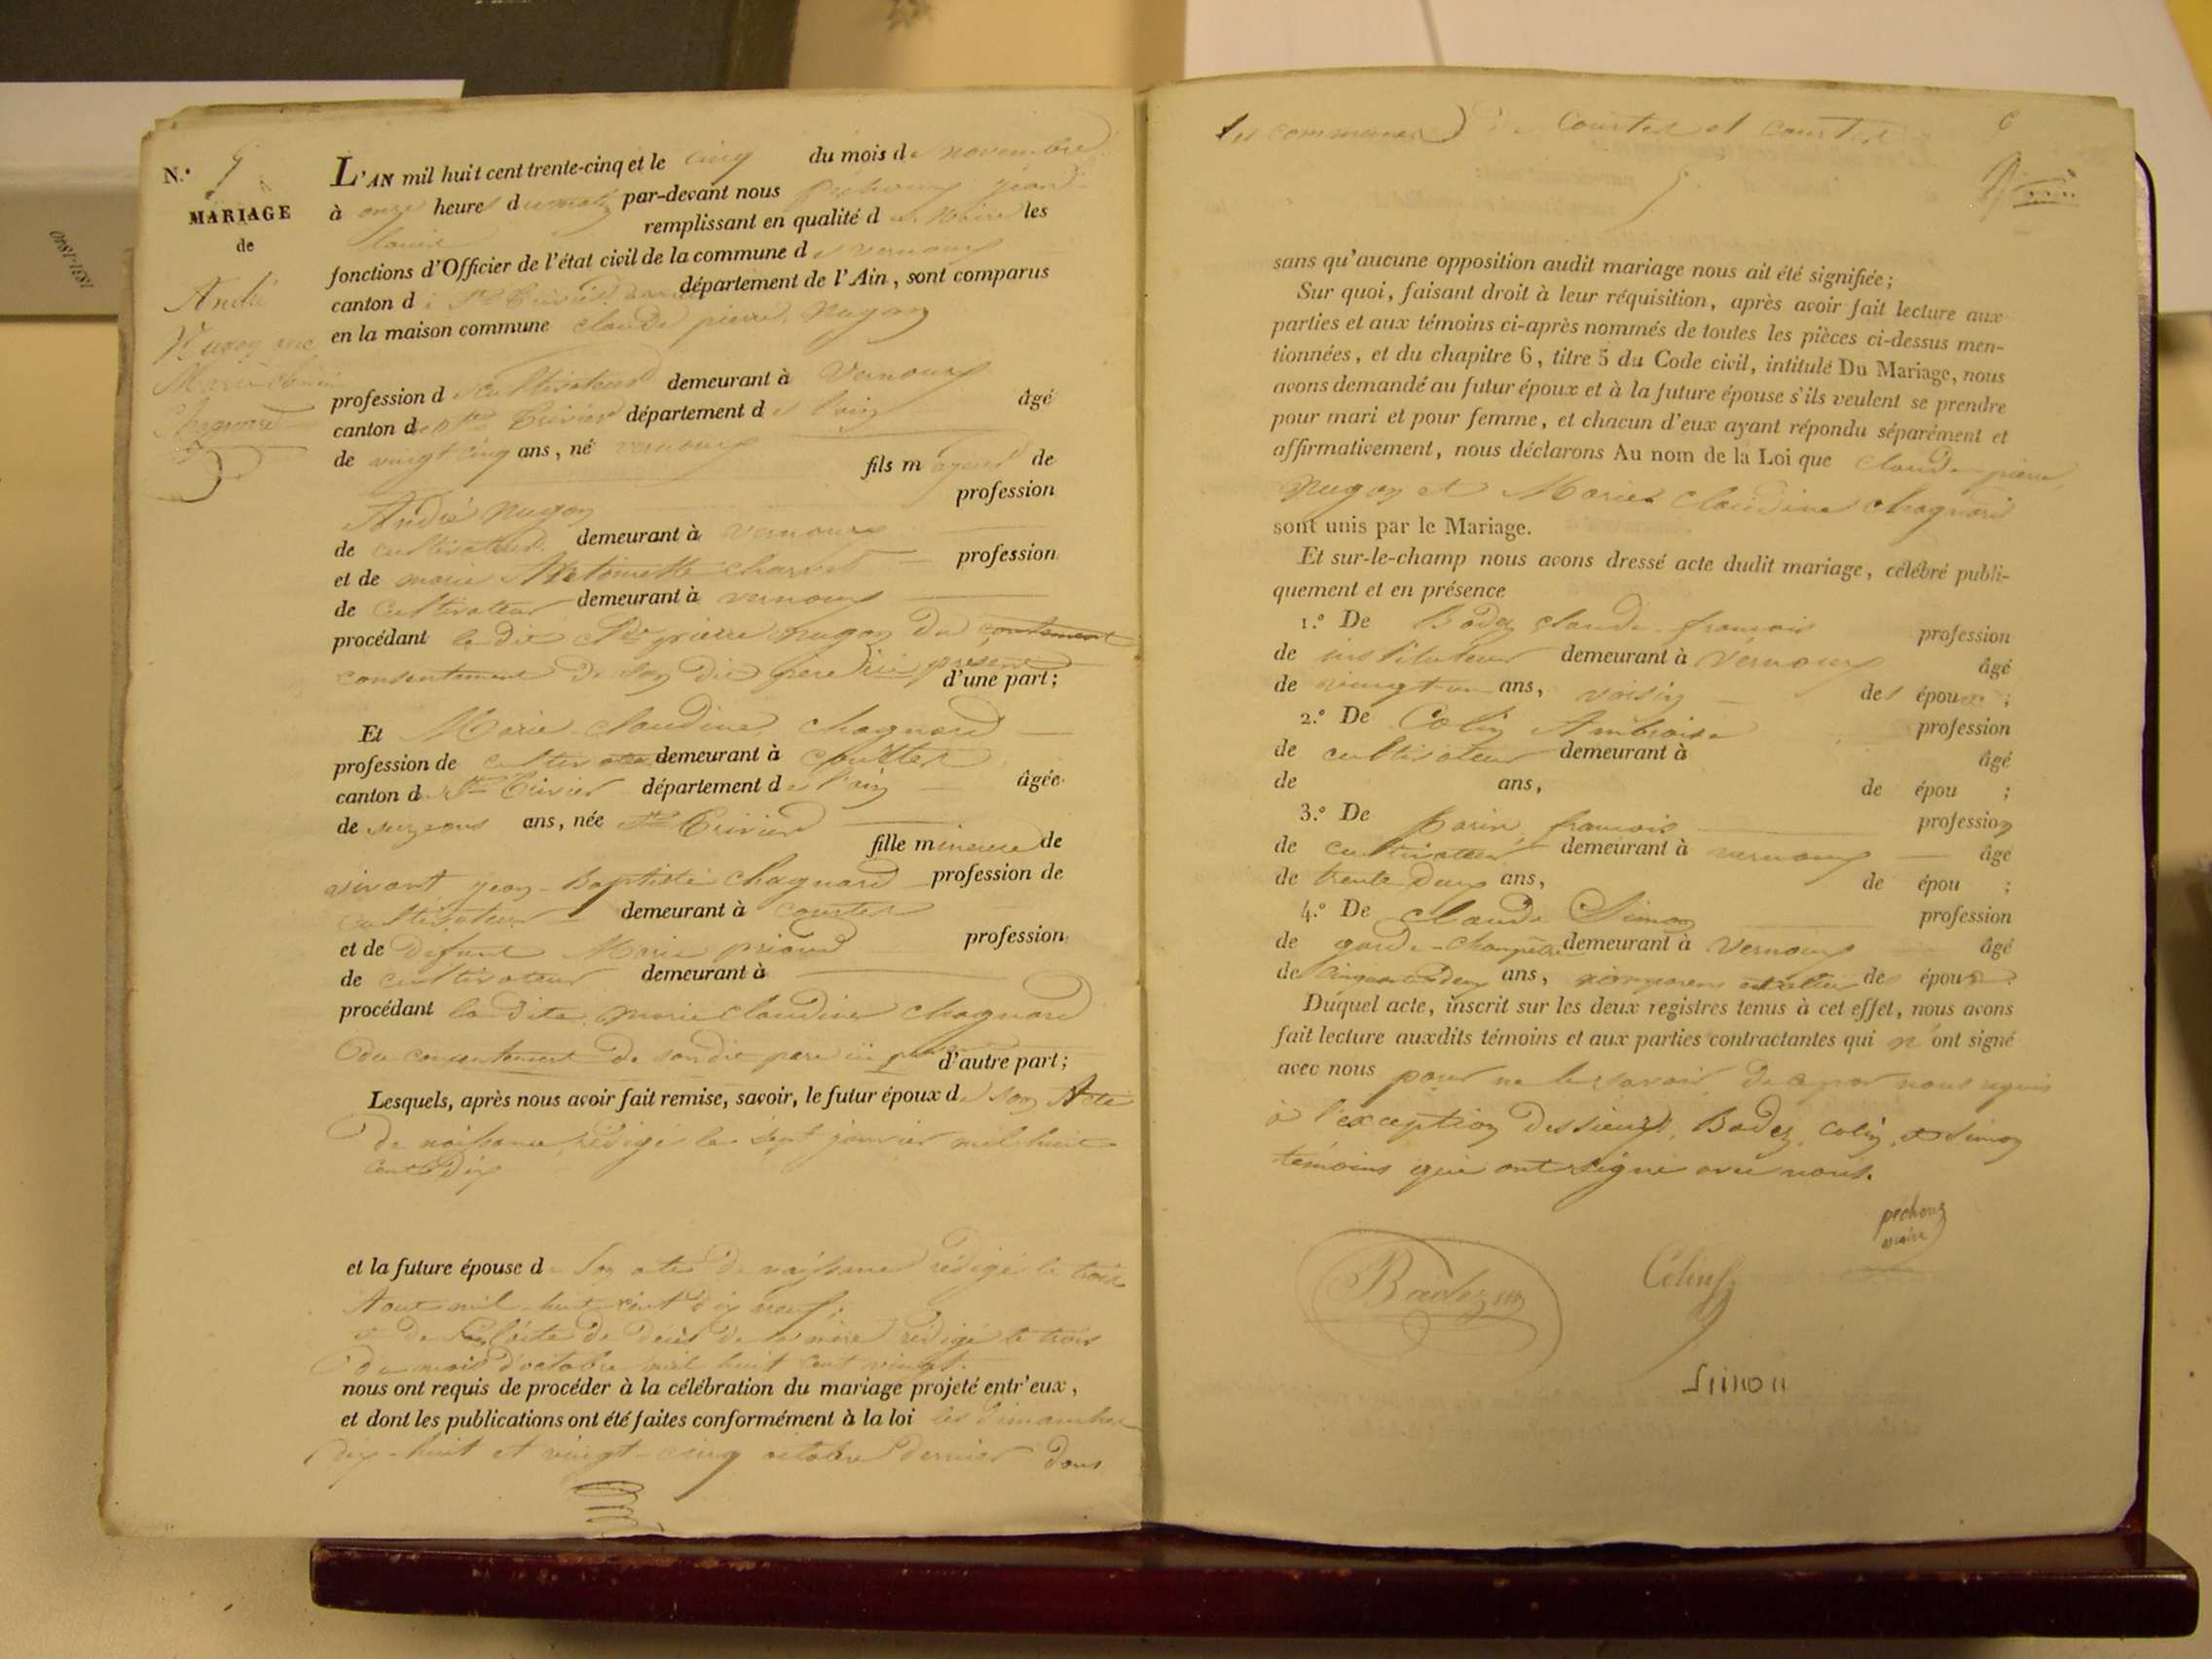 N.° 9
MARIAGE
de
André
Nugon avec
Marie claudine
Chagnard
L'AN mil huit cent trente-cinq et le cinq du mois de novembre
à onze heures du matin par-devant nous pechoux jean
louis remplissant en qualité de Maire les
fonctions d'Officier de l'état civil de la commune de vernoux
canton de St Trivier département de l'Ain, sont comparus
en la maison commune claude pierre Nugon
profession de cultivateur demeurant à Vernoux
canton de St Trivier département de l'ain âgé
de vingt cinq ans, né vernoux
fils majeur de
André Nugon profession
de cultivateur demeurant à vernoux
et de marie Antoinette charvet profession
de Cultivateur demeurant à vernoux
procédant le dit Cde pierre nugon du
consentement de son dit pere ici présent d'une part;
Et Marie claudine chagnard
profession de cultivateur demeurant à Courtes
canton de St Trivier département de l'ain âgée
de seize ans, née St Trivier
fille mineure de
vivant jean-Baptiste Chagnard profession de
cultivateur demeurant à courtes
et de defunt Marie priaud profession
de cultivateur demeurant à
procédant la dite marie claudine chagnard
du consentement de son dit pere ici présent d'autre part;
Lesquels, après nous avoir fait remise, savoir, le futur époux de son Acte
de naissance rédigé le sept janvier mil huit
cent dix
et la future épouse de son acte de naissance rédigé le trois
Aout mil huit cent dix neuf;
et de l'acte de décès de sa mère rédigé le trois
du mois d'octobre mil huit cent vingt.
nous ont requis de procéder à la célébration du mariage projeté entr'eux,
et dont les publications ont été faites conformément à la loi les dimanches
dix-huit et vingt-cinq octobre dernier dans
les communes de Courtes et courtes
sans qu'aucune opposition audit mariage nous ait été signifiée;
Sur quoi, faisant droit à leur réquisition, après avoir fait lecture aux
parties et aux témoins ci-après nommés de toutes les pièces ci-dessus men-
tionnées, et du chapitre 6, titre 5 du Code civil, intitulé Du Mariage, nous
avons demandé au futur époux et à la future épouse s'ils veulent se prendre
pour mari et pour femme, et chacun d'eux ayant répondu séparément et
affirmativement, nous déclarons Au nom de la Loi que claude pierre
nugon et Marie claudine chagnard
sont unis par le Mariage.
Et sur-le-champ nous avons dressé acte dudit mariage, célébré publi-
quement et en présence
1.° De Badez claude françois profession
de instituteur demeurant à vernoux âgé
de vingt-un ans, voisin des époux;
2.° De Colin Ambroise profession
de cultivateur demeurant à âgé
de ans, de épou ;
3.° De parin françois profession
de cultivateur demeurant à vernoux âgé
de trente deux ans, de épou ;
4.° De claude Simon profession
de garde-champêtre demeurant à Vernoux âgé
de cinquante deux ans, non parens des époux.
Duquel acte, inscrit sur les deux registres tenus à cet effet, nous avons
fait lecture auxdits témoins et aux parties contractantes qui n'ont signé
avec nous pour ne le savoir de ce par nous requis
à l'exception des sieurs, Badez, colin et simon
témoins qui ont signé avec nous.
pechoux
maire
Badez
Colin
simon